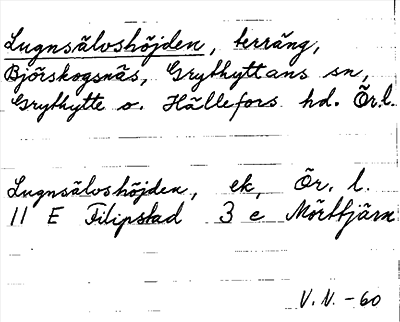 Lugnsälvshöjden, terräng,
Björskogsnäs, Grythyttans sn,
Grythytte o. Hällefors hd. Ör.l.
Lugnsälvshöjden, ek, Ör. l.
11 E Filipstad 3 e Mörttjärn
V.N. -60